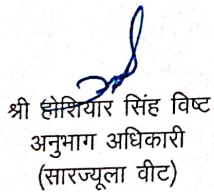 श्री होशियार सिंह विष्ट
अनुभाग अधिकारी
(सारज्यूला वीट)